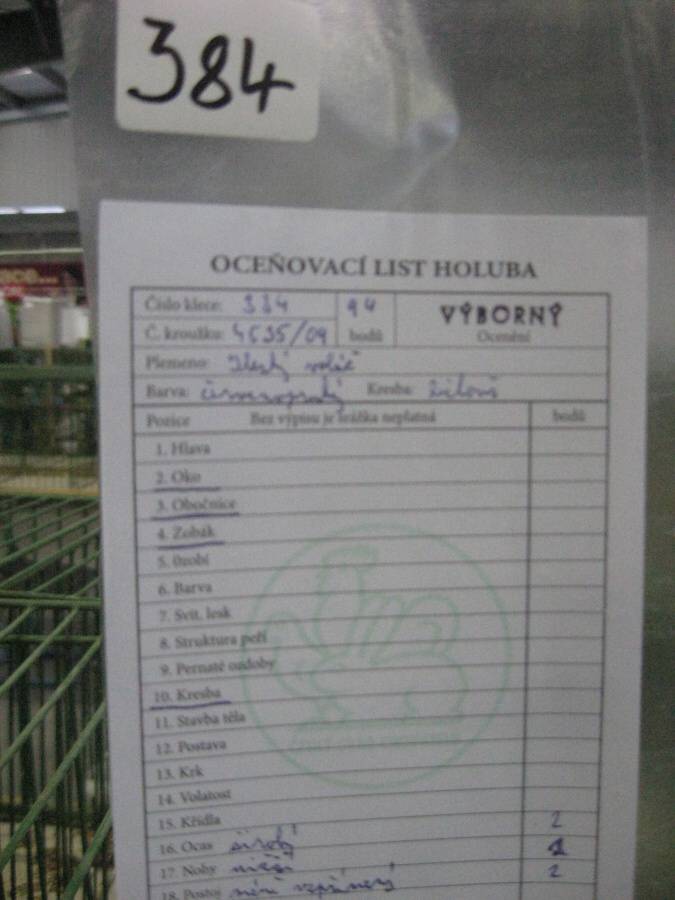 384
OCEŇOVACÍ LIST HOLUBA
Číslo klece: 384 94 VÝBORNÝ
Č. kroužku: bodů Ocenění
Plemeno: Slezský voláč
Barva: Kresba:
Pozice Bez výpisu je srážka neplatná bodů
1. Hlava
2. Oko
3. Obočnice
4. Zobák
5. Ozobí
6. Barva
7. Svit. lesk
8. Struktura peří
9. Pernaté ozdoby
10. Kresba
11. Stavba těla
12. Postava
13. Krk
14. Volatost
15. Křídla 2
16. Ocas široký 1
17. Nohy nižší 2
18. Postoj méně vzpřímený